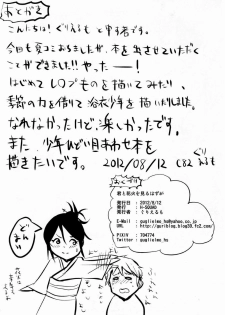 あとがき
こんにちは！ぐりえるもと申す者です。
今回も夏コミおりましたが、本を出させていただく
ことができました!! やったー！
はじめてレロプものを描いてみたり、
季節の力を借りて浴衣少年を描いたりしました。
なれなかったけど、楽しかったです。
また、少年ひどい目あわせ本を
描きたいです。 2012/08/12 C82 ぐりえるも
おくづけ
君と花火を見るはずが
発行日 : 2012/8/12
発行 : H-SQUAD
著者 : ぐりえるも
E-Mail : guglielmo_hs@yahoo.co.jp
URL : http://guriblog.blog39.fc2.com/
PIXIV : 704774
Twitter : guglielmo_hs
どまい